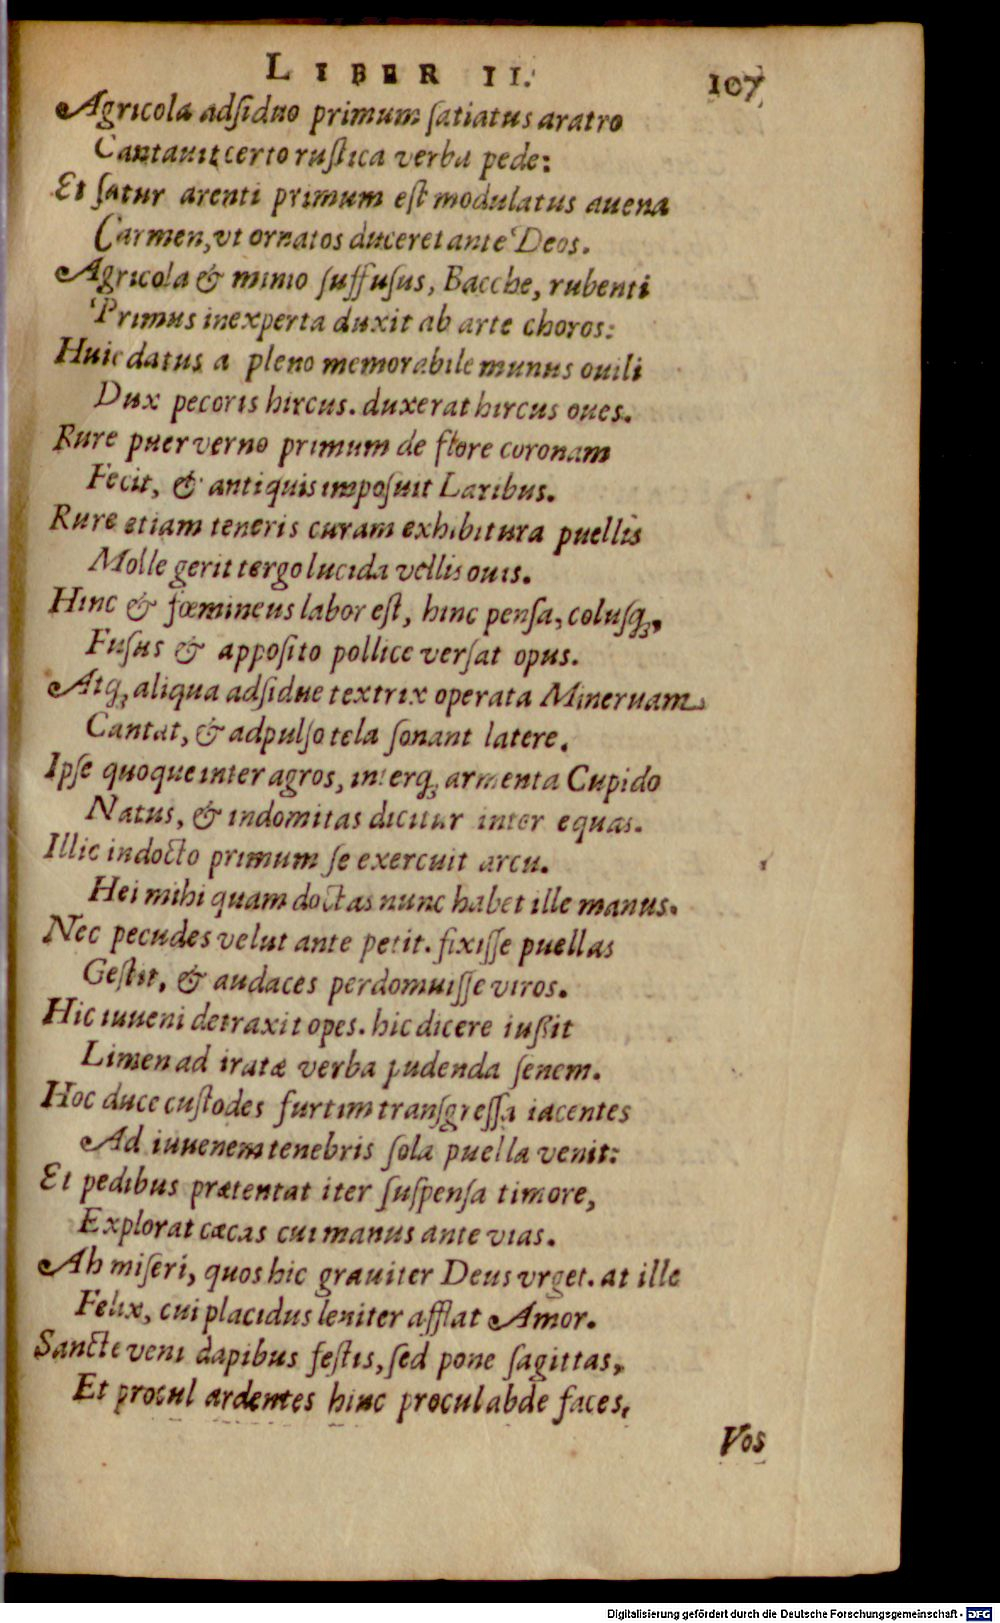 LIBER II. 107
Agricola adſiduo primum ſatiatus aratro
Cantauit certo ruſtica verba pede:
Et ſatur arenti primum eſt modulatus auena
Carmen, vt ornatos duceret ante Deos.
Agricola & minio ſuffuſus, Bacche, rubenti
Primus inexperta duxit ab arte choros:
Huic datus a pleno memorabile munus ouili
Dux pecoris hircus. duxerat hircus oues.
Rure puer verno primum de flore coronam
Fecit, & antiquis impoſuit Laribus.
Rure etiam teneris curam exhibitura puellis
Molle gerit tergo lucida vellis ouis.
Hinc & fœmineus labor eſt, hinc penſa, coluſq́ꝫ,
Fuſus & appoſito pollice verſat opus.
Atqꝫ aliqua adſidue textrix operata Mineruam
Cantat, & adpulſo tela ſonant latere.
Ipſe quoque inter agros, interqꝫ armenta Cupido
Natus, & indomitas dicitur inter equas.
Illic indocto primum ſe exercuit arcu.
Hei mihi quam doctas nunc habet ille manus.
Nec pecudes velut ante petit. fixiſſe puellas
Geſtit, & audaces perdomuiſſe viros.
Hic iuueni detraxit opes. hic dicere iußit
Limen ad iratæ verba pudenda ſenem.
Hoc duce cuſtodes furtim tranſgreſſa iacentes
Ad iuuenem tenebris ſola puella venit:
Et pedibus prætentat iter ſuſpenſa timore,
Explorat cæcas cui manus ante vias.
Ah miſeri, quos hic grauiter Deus vrget. at ille
Felix, cui placidus leniter afflat Amor.
Sancte veni dapibus feſtis, ſed pone ſagittas,
Et procul ardentes hinc procul abde faces,
Vos
Digitalisierung gefördert durch die Deutsche Forschungsgemeinschaft - DFG